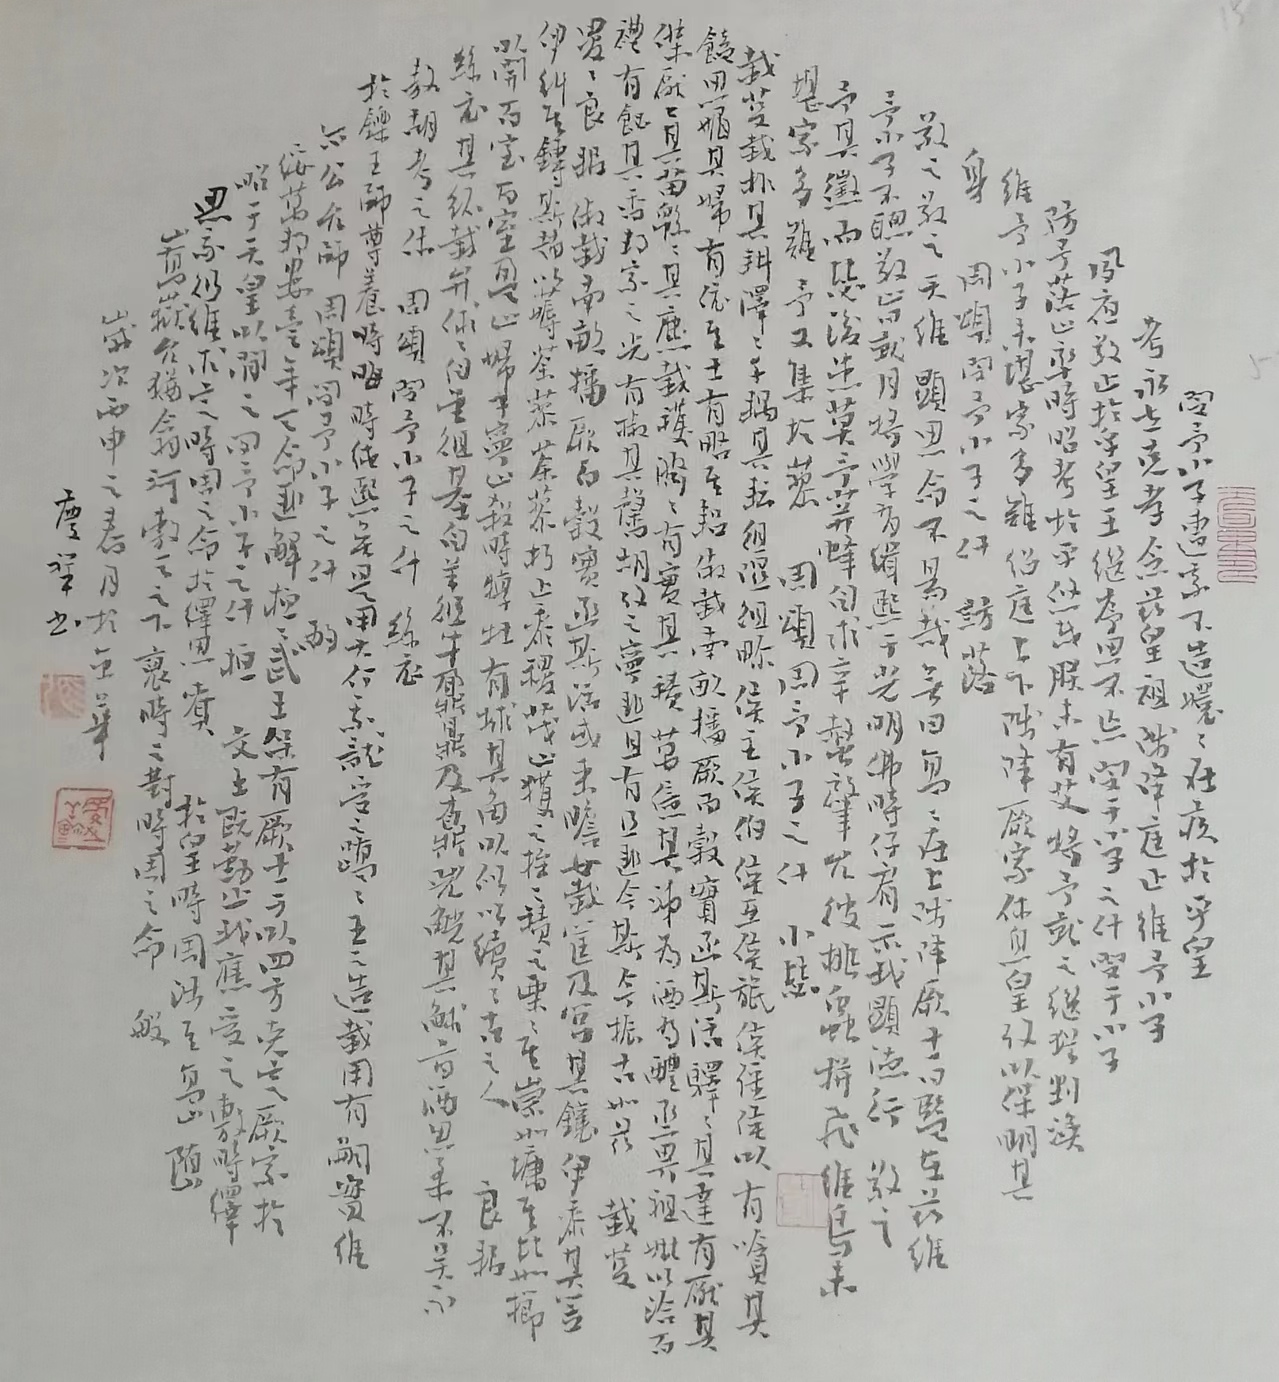 閔予小子遭家不造嬛〻在疚於乎皇
考永世克孝念茲皇祖陟降庭止維予小子
夙夜敬止於乎皇王繼序思不忘閔予小子之什閔予小子
訪予落止率時昭考於乎悠哉朕未有艾將予就之繼猶判渙
維予小子未堪家多難紹庭上下陟降厥家休矣皇考以保明其
身 周頌閔予小子之什 訪落
敬之敬之天維顯思命不易哉無曰高〻在上陟降厥士日監在茲維
予小子不聰敬止日就月將學有緝熙于光明佛時仔肩示我顯德行 敬之
予其懲而毖後患莫予荓蜂自求辛螫肇允彼桃蟲拚飛維鳥未
堪家多難予又集於蓼 周頌閔予小子之什 小毖
載芟載柞其耕澤〻千耦其耘徂隰徂畛侯主侯伯侯亞侯旅侯彊侯以有嗿其
饁思媚其婦有依其士有略其耜俶載南畝播厥百穀實函斯活驛〻其達有厭其
傑厭厭其苗緜〻其麃載穫濟〻有實其積萬億其秭為酒為醴烝畀祖妣以洽百
禮有飶其香邦家之光有椒其馨胡考之寧匪且有且匪今斯今振古如茲 載芟
畟〻良耜俶載南畝播厥百穀實函斯活或來瞻女載筐及筥其饟伊黍其笠
伊糾其鎛斯趙以薅荼蓼荼蓼朽止黍稷茂止穫之挃〻積之栗〻其崇如墉其比如櫛
以開百室百室盈止婦子寧止殺時犉牡有捄其角以似以續〻古之人 良耜
絲衣其紑載弁俅〻自堂徂基自羊徂牛鼐鼎及鼒兕觥其觩旨酒思柔不吳不
敖胡考之休 周頌閔予小子之什 絲衣
於鑠王師遵養時晦時純熙矣是用大介我龍受之蹻〻王之造載用有嗣實維
爾公允師 周頌閔予小子之什 酌
綏萬邦婁豐年天命匪解桓〻武王保有厥士于以四方克定厥家於
昭于天皇以間之閔予小子之什 桓 文王既勤止我應受之敷時繹
思我徂維求定時周之命於繹思 賚 於皇時周陟其高山 隋山
喬嶽允猶翕河敷天之下裒時之對時周之命 般
歲次丙申之春月於金華